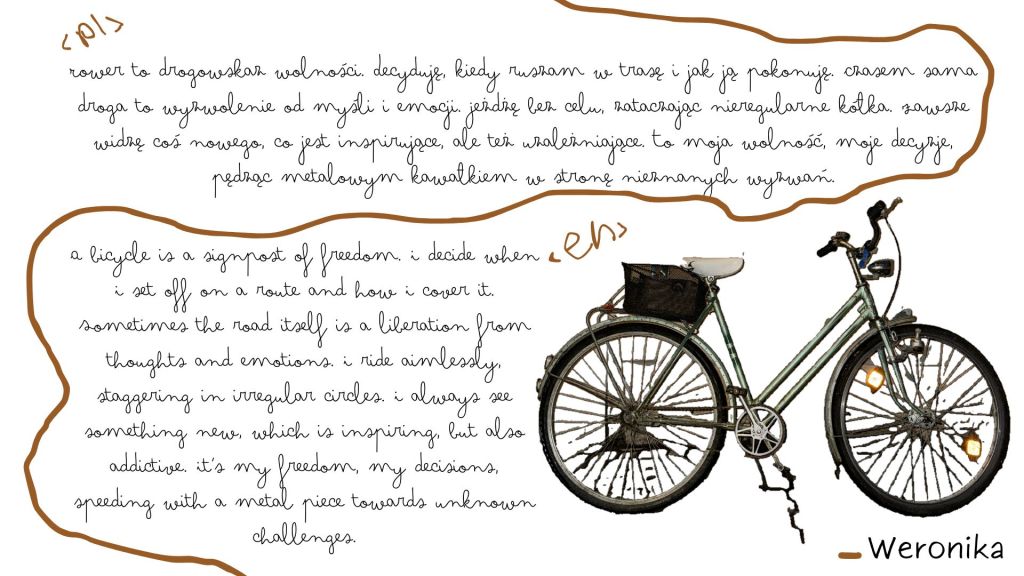 <pl>
rower to drogowskaz wolności. decyduję, kiedy ruszam w trasę i jak ją pokonuję. czasem sama
droga to wyzwolenie od myśli i emocji. jeżdżę bez celu, zataczając nieregularne kółka. zawsze
widzę coś nowego, co jest inspirujące, ale też uzależniające. to moja wolność, moje decyzje,
pędząc metalowym kawałkiem w stronę nieznanych wyzwań.
<en>
a bicycle is a signpost of freedom. i decide when
i set off on a route and how i cover it.
sometimes the road itself is a liberation from
thoughts and emotions. i ride aimlessly,
staggering in irregular circles. i always see
something new, which is inspiring, but also
addictive. it's my freedom, my decisions,
speeding with a metal piece towards unknown
challenges.
_ Weronika